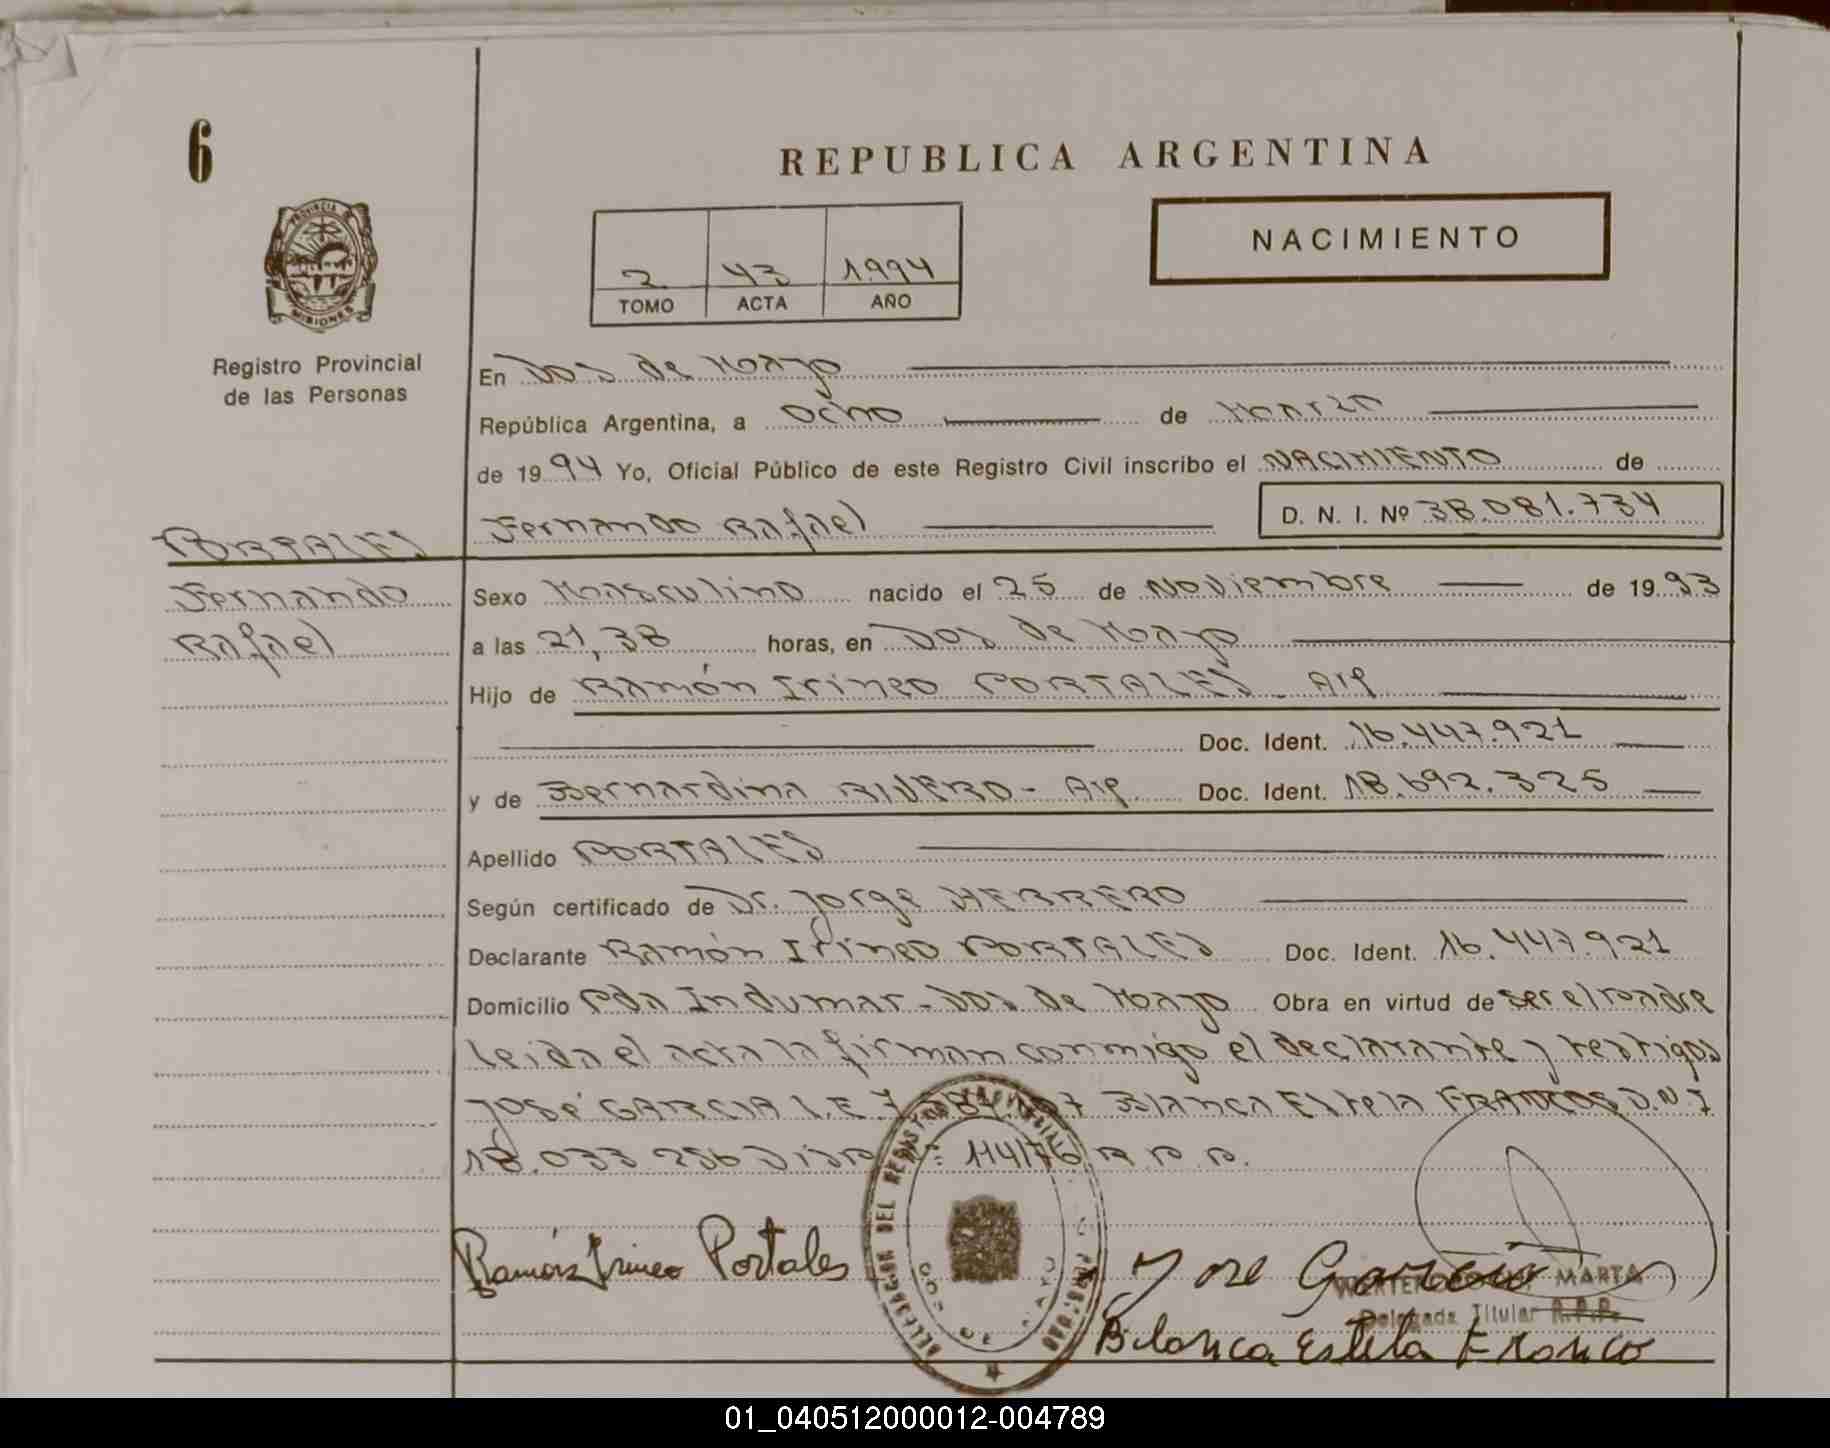 6
REPUBLICA ARGENTINA
NACIMIENTO
2 43 1.994
TOMO ACTA AÑO
PROVINCIA DE
MISIONES
Registro Provincial
de las Personas
En Dos de Mayo
República Argentina, a Ocho de Marzo
de 19 94 Yo, Oficial Público de este Registro Civil inscribo el NACIMIENTO de
Fernando Rafael D. N. I. Nº 38.081.734
PORTALES
Fernando
Rafael
Sexo Masculino nacido el 25 de Noviembre de 19 93
a las 21,38 horas, en Dos de Mayo
Hijo de Ramón Irineo PORTALES - Arg
Doc. Ident. 16.447.921
y de Bernardina RIVERO - Arg. Doc. Ident. 18.692.325
Apellido PORTALES
Según certificado de Dr. Jorge HERRERO
Declarante Ramón Irineo PORTALES Doc. Ident. 16.447.921
Domicilio Pda Indumar - Dos de Mayo Obra en virtud de ser el padre
Leida el acta la firman conmigo el declarante y testigos
José GARCIA L.E 7 Blanca Estela D.N.I
18.033.256 Disp 114/76 R.P.P.
Ramón Irineo Portales
DELEGACION DEL REGISTRO PROVINCIAL DE LAS PERSONAS
DOS DE MAYO
Jose Garcia
MARTA
Delegada Titular R.P.P.
Blanca Estela Franco
01_040512000012-004789